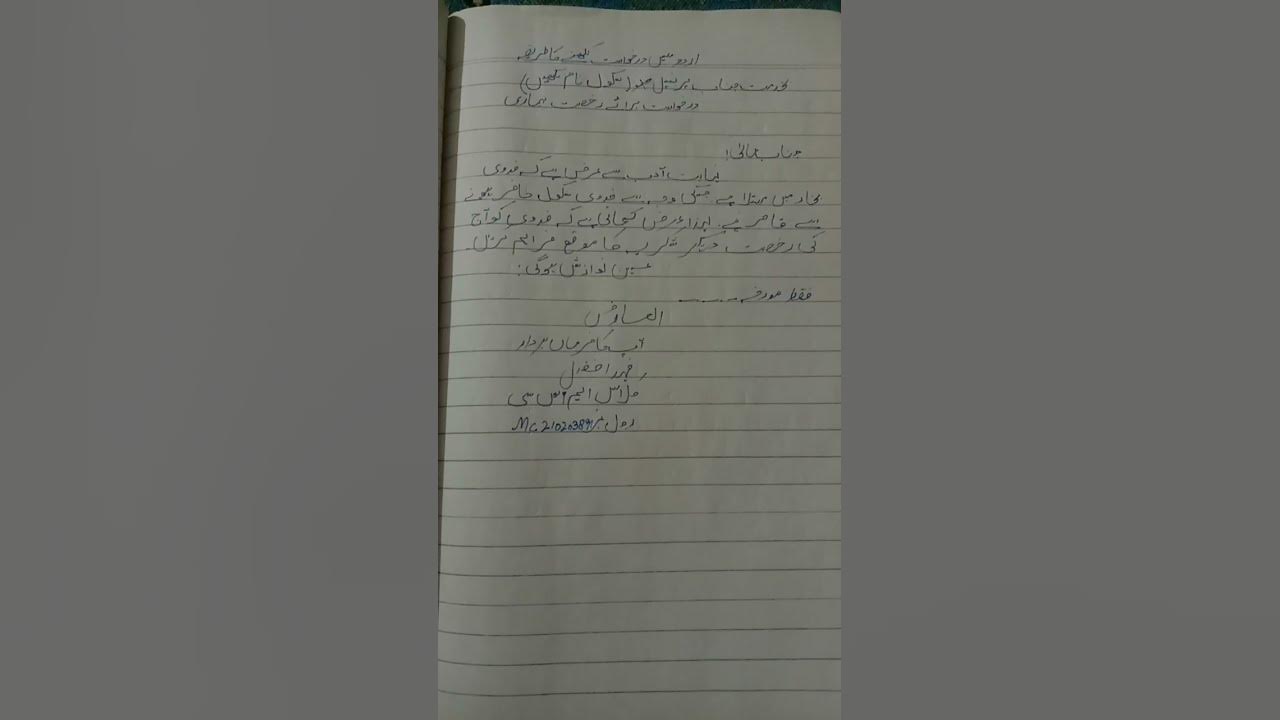 اردو میں درخواست لکھنے کا طریقہ
بخدمت جناب پرنسپل (سکول نام لکھیں)
درخواست برائے رخصت بیماری
جناب عالی!
نہایت آدب سے عرض ہے کہ فدوی
بخار میں مبتلا ہے جسکی وجہ سے فدوی سکول حاضر ہونے
سے قاصر ہے۔ لہذا عرض کی جاتی ہے کہ فدوی کو آج
کی رخصت دیکر شکریہ کا موقع فراہم کریں
عین نوازش ہوگی:
فقط مورخہ ----
العارض
آپ کا فرماں بردار
کلاس ایم ایس سی
رول نمبر